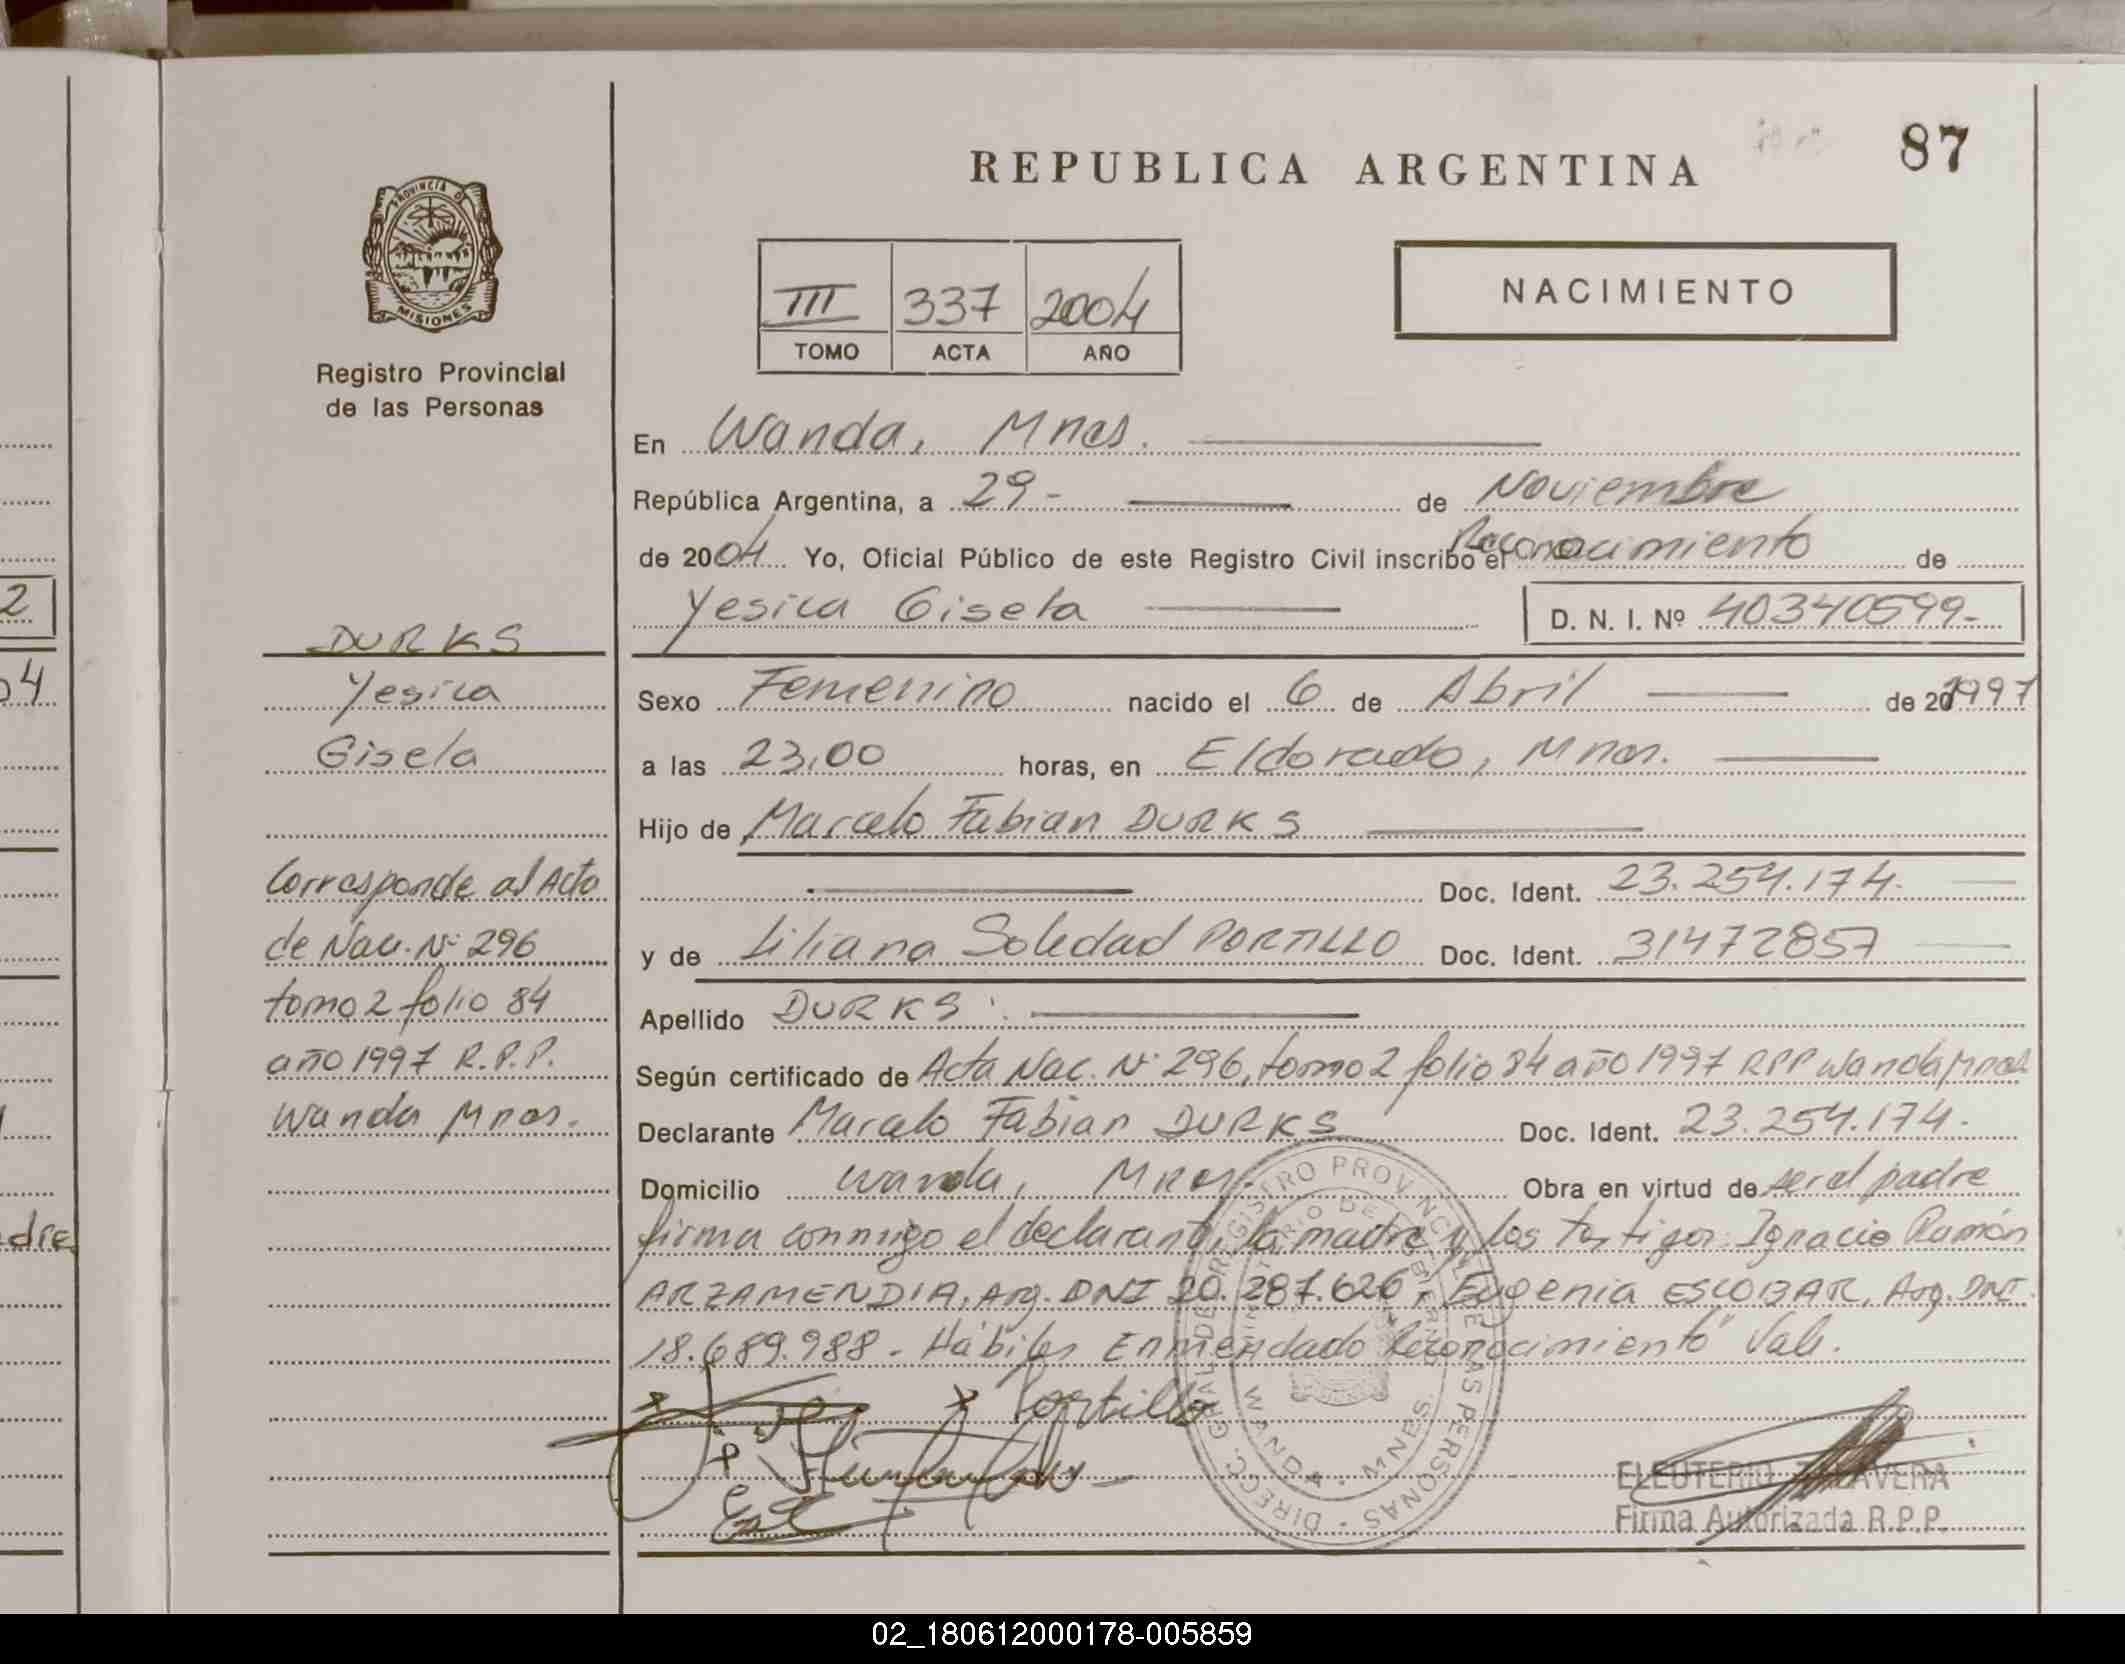 87
REPUBLICA ARGENTINA
PROVINCIA DE
MISIONES
Registro Provincial
de las Personas
NACIMIENTO
III 337 2004
TOMO ACTA AÑO
En Wanda, Mnes.
República Argentina, a 29- de Noviembre
de 2004 Yo, Oficial Público de este Registro Civil inscribo el Reconocimiento de
Yesica Gisela D. N. I. Nº 40340599-
Sexo Femenino nacido el 6 de Abril de 201997
a las 23,00 horas, en Eldorado, Mnes.
Hijo de Marcelo Fabian DURKS
Doc. Ident. 23.254.174.
y de Liliana Soledad PORTILLO Doc. Ident. 31472857
Apellido DURKS
Según certificado de Acta Nac. Nº 296, tomo 2 folio 84 año 1997 RPP Wanda Mnes
Declarante Marcelo Fabian DURKS Doc. Ident. 23.254.174.
Domicilio Wanda, Mnes. Obra en virtud de ser el padre
firma conmigo el declarante, la madre y los testigos: Ignacio Ramón
ARZAMENDIA, Arg. DNI 20.287.626, Eugenia ESCOBAR, Arg. DNI.
18.689.988. Hábiles Enmendado Reconocimiento" Vale.
Portillo
ELEUTERIO TALAVERA
Firma Autorizada R.P.P.
DIRECC. GRAL. DE REGISTRO PROVINCIAL DE LAS PERSONAS
MINISTERIO DE GOBIERNO
WANDA - MNES.
DURKS
Yesica
Gisela
Corresponde al Acta
de Nac. Nº 296
tomo 2 folio 84
año 1997 R.P.P.
Wanda Mnes.
2
04
adre
02_180612000178-005859